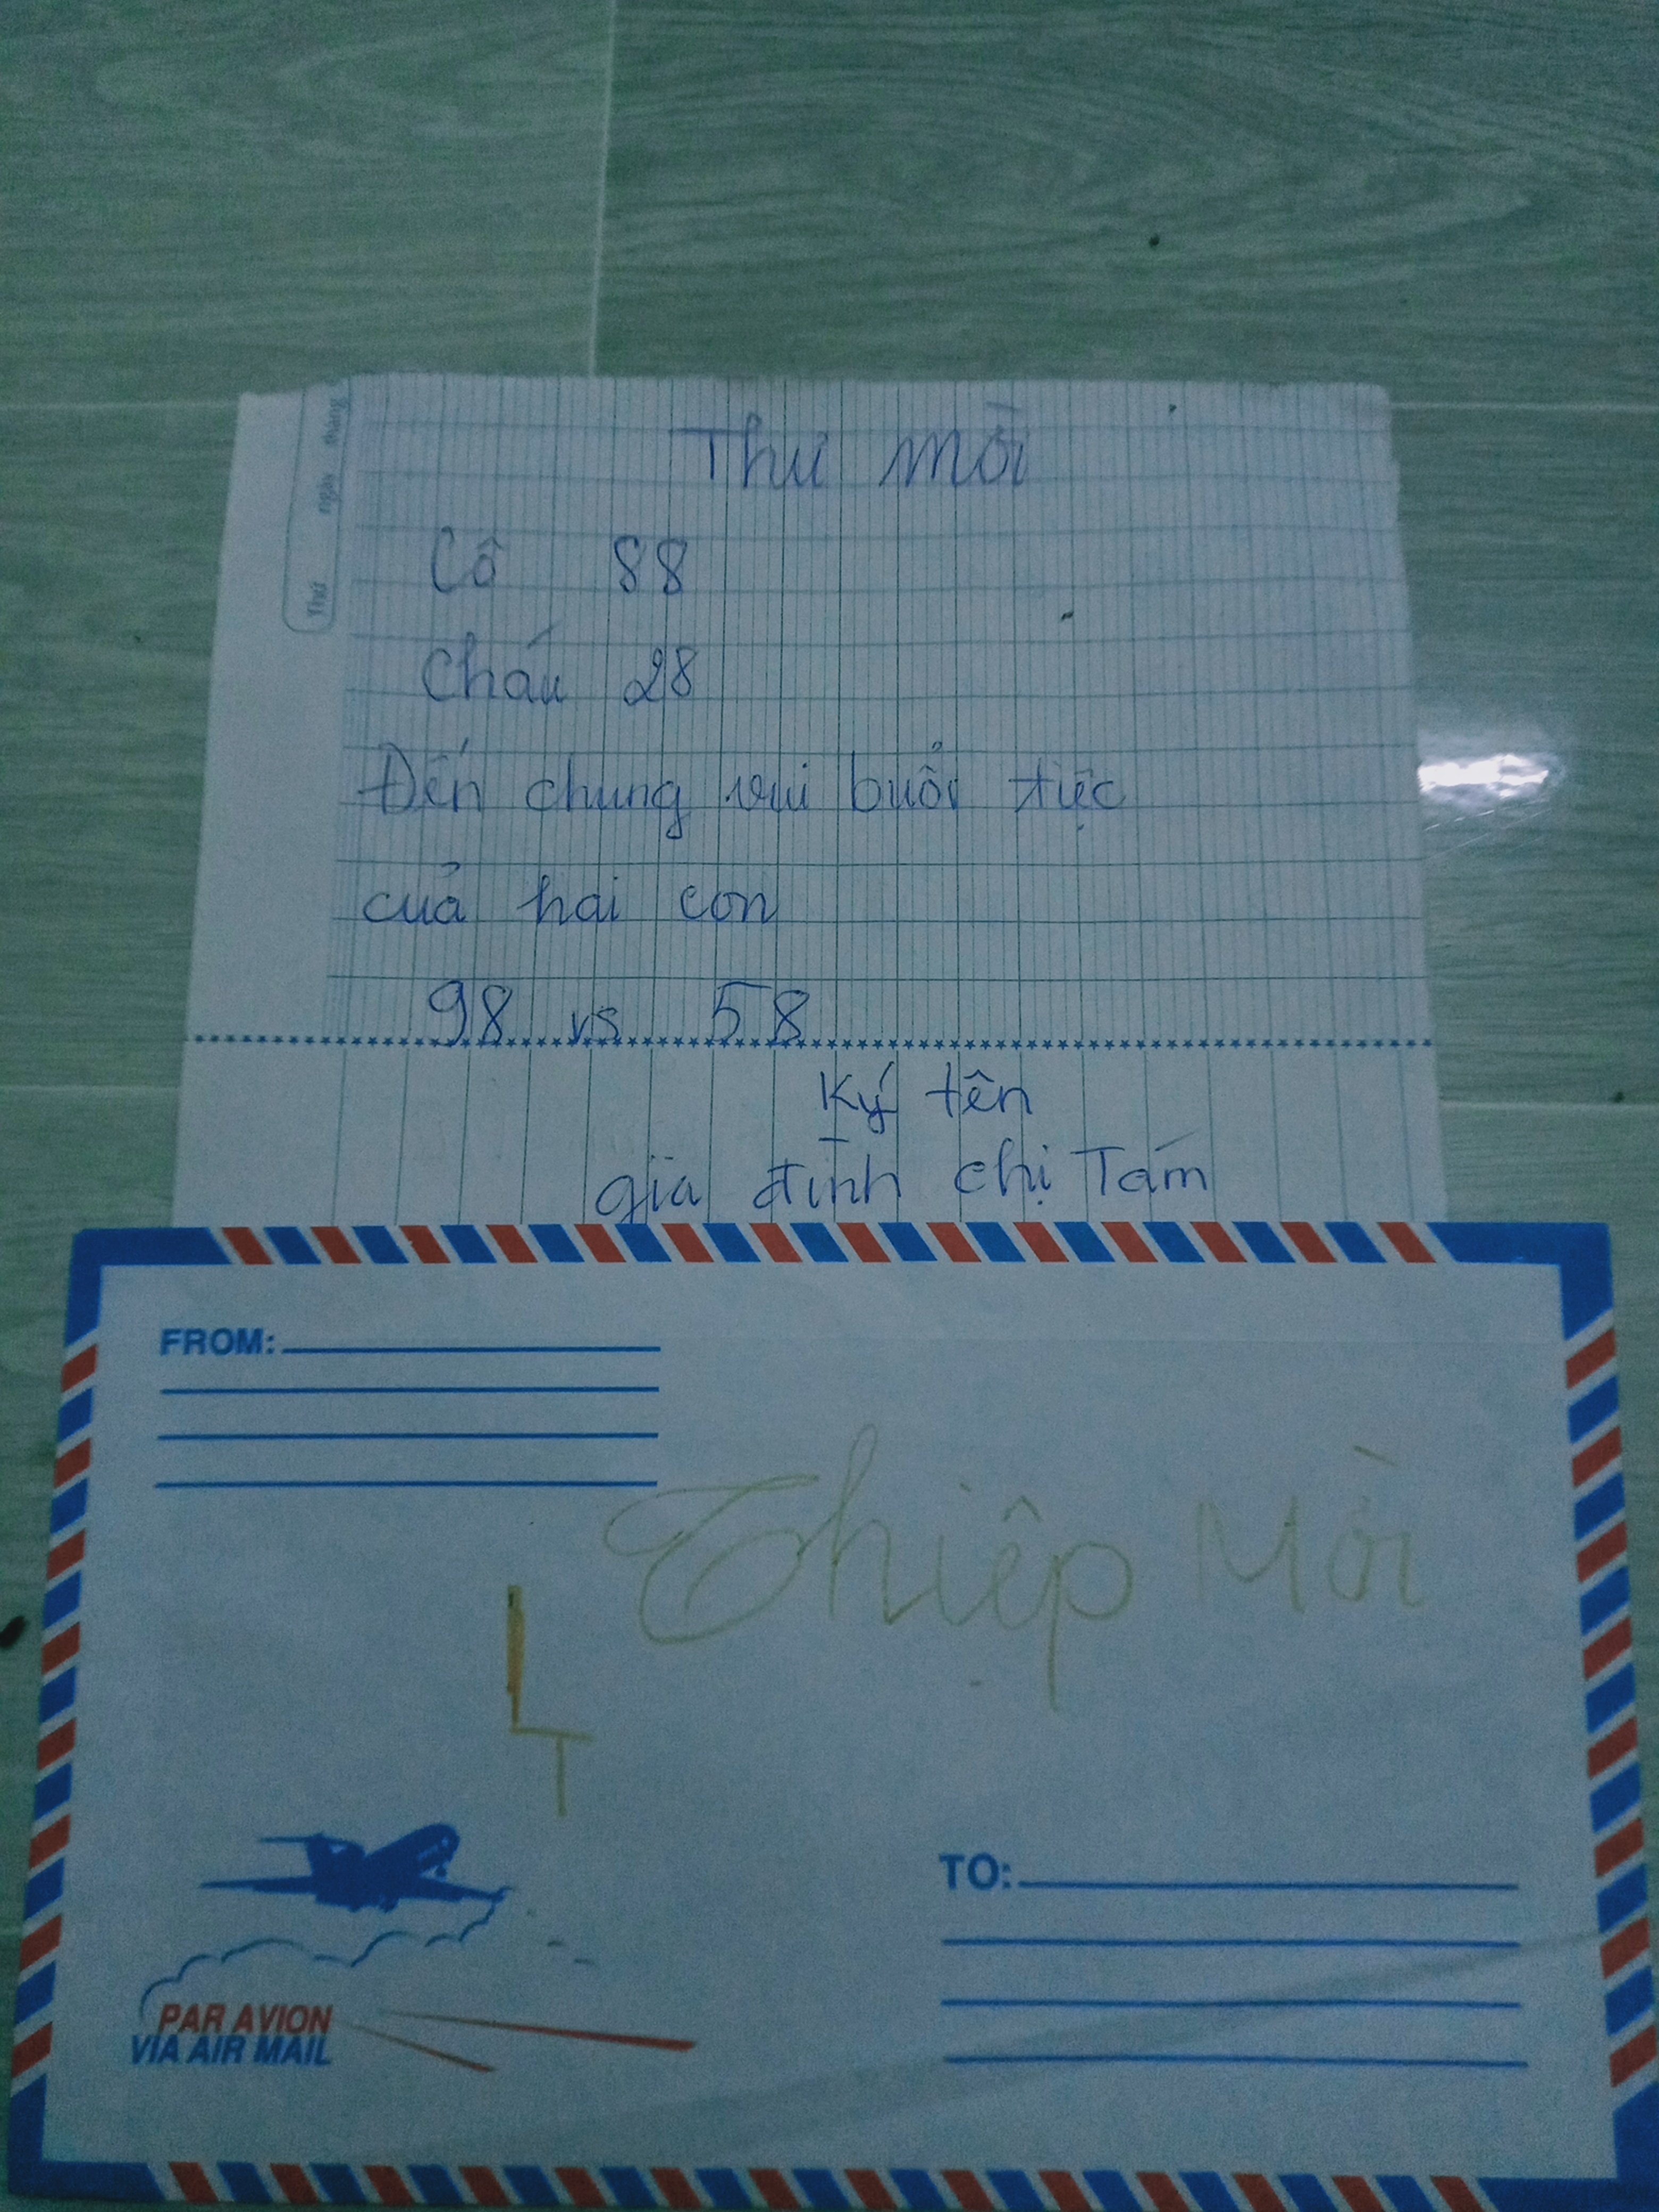 tháng
ngày
Thứ
Thư mời
Cô 88
Cháu 28
Đến chung vui buổi tiệc
của hai con
98 vs 58
Ký tên
gia đình chị Tám
FROM:
Thiệp Mời
LT
TO:
PAR AVION
VIA AIR MAIL